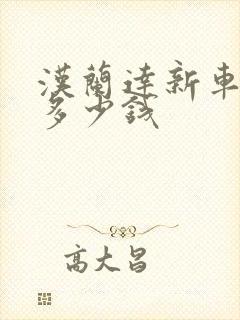 漢蘭達新車
多少錢
高大昌